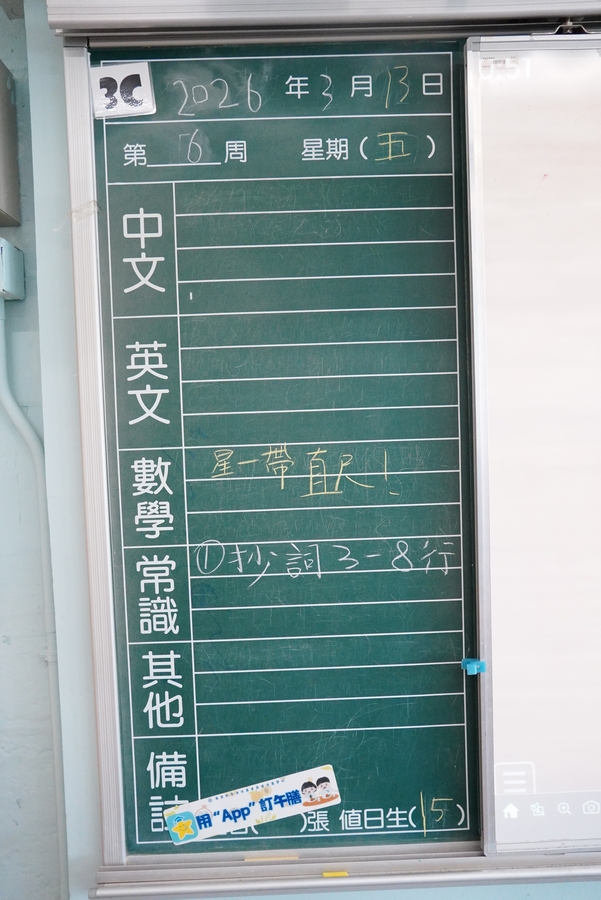 3C
2026 年 3 月 13 日
第 6 周 星期(五)
中文
英文
數學
星一帶直尺!
常識
①抄詞3-8行
其他
備
用“App”訂午膳
)張 值日生(15)